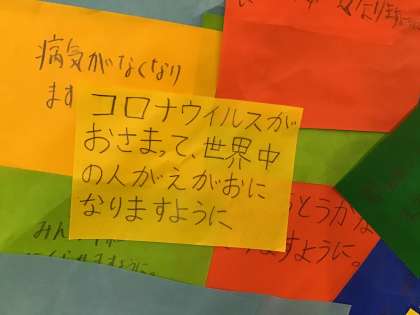 なります
病気がなくなり
ます
コロナウイルスが
おさまって、世界中
の人がえがおに
なりますように
みん
とうかな
ますように。
ますように。